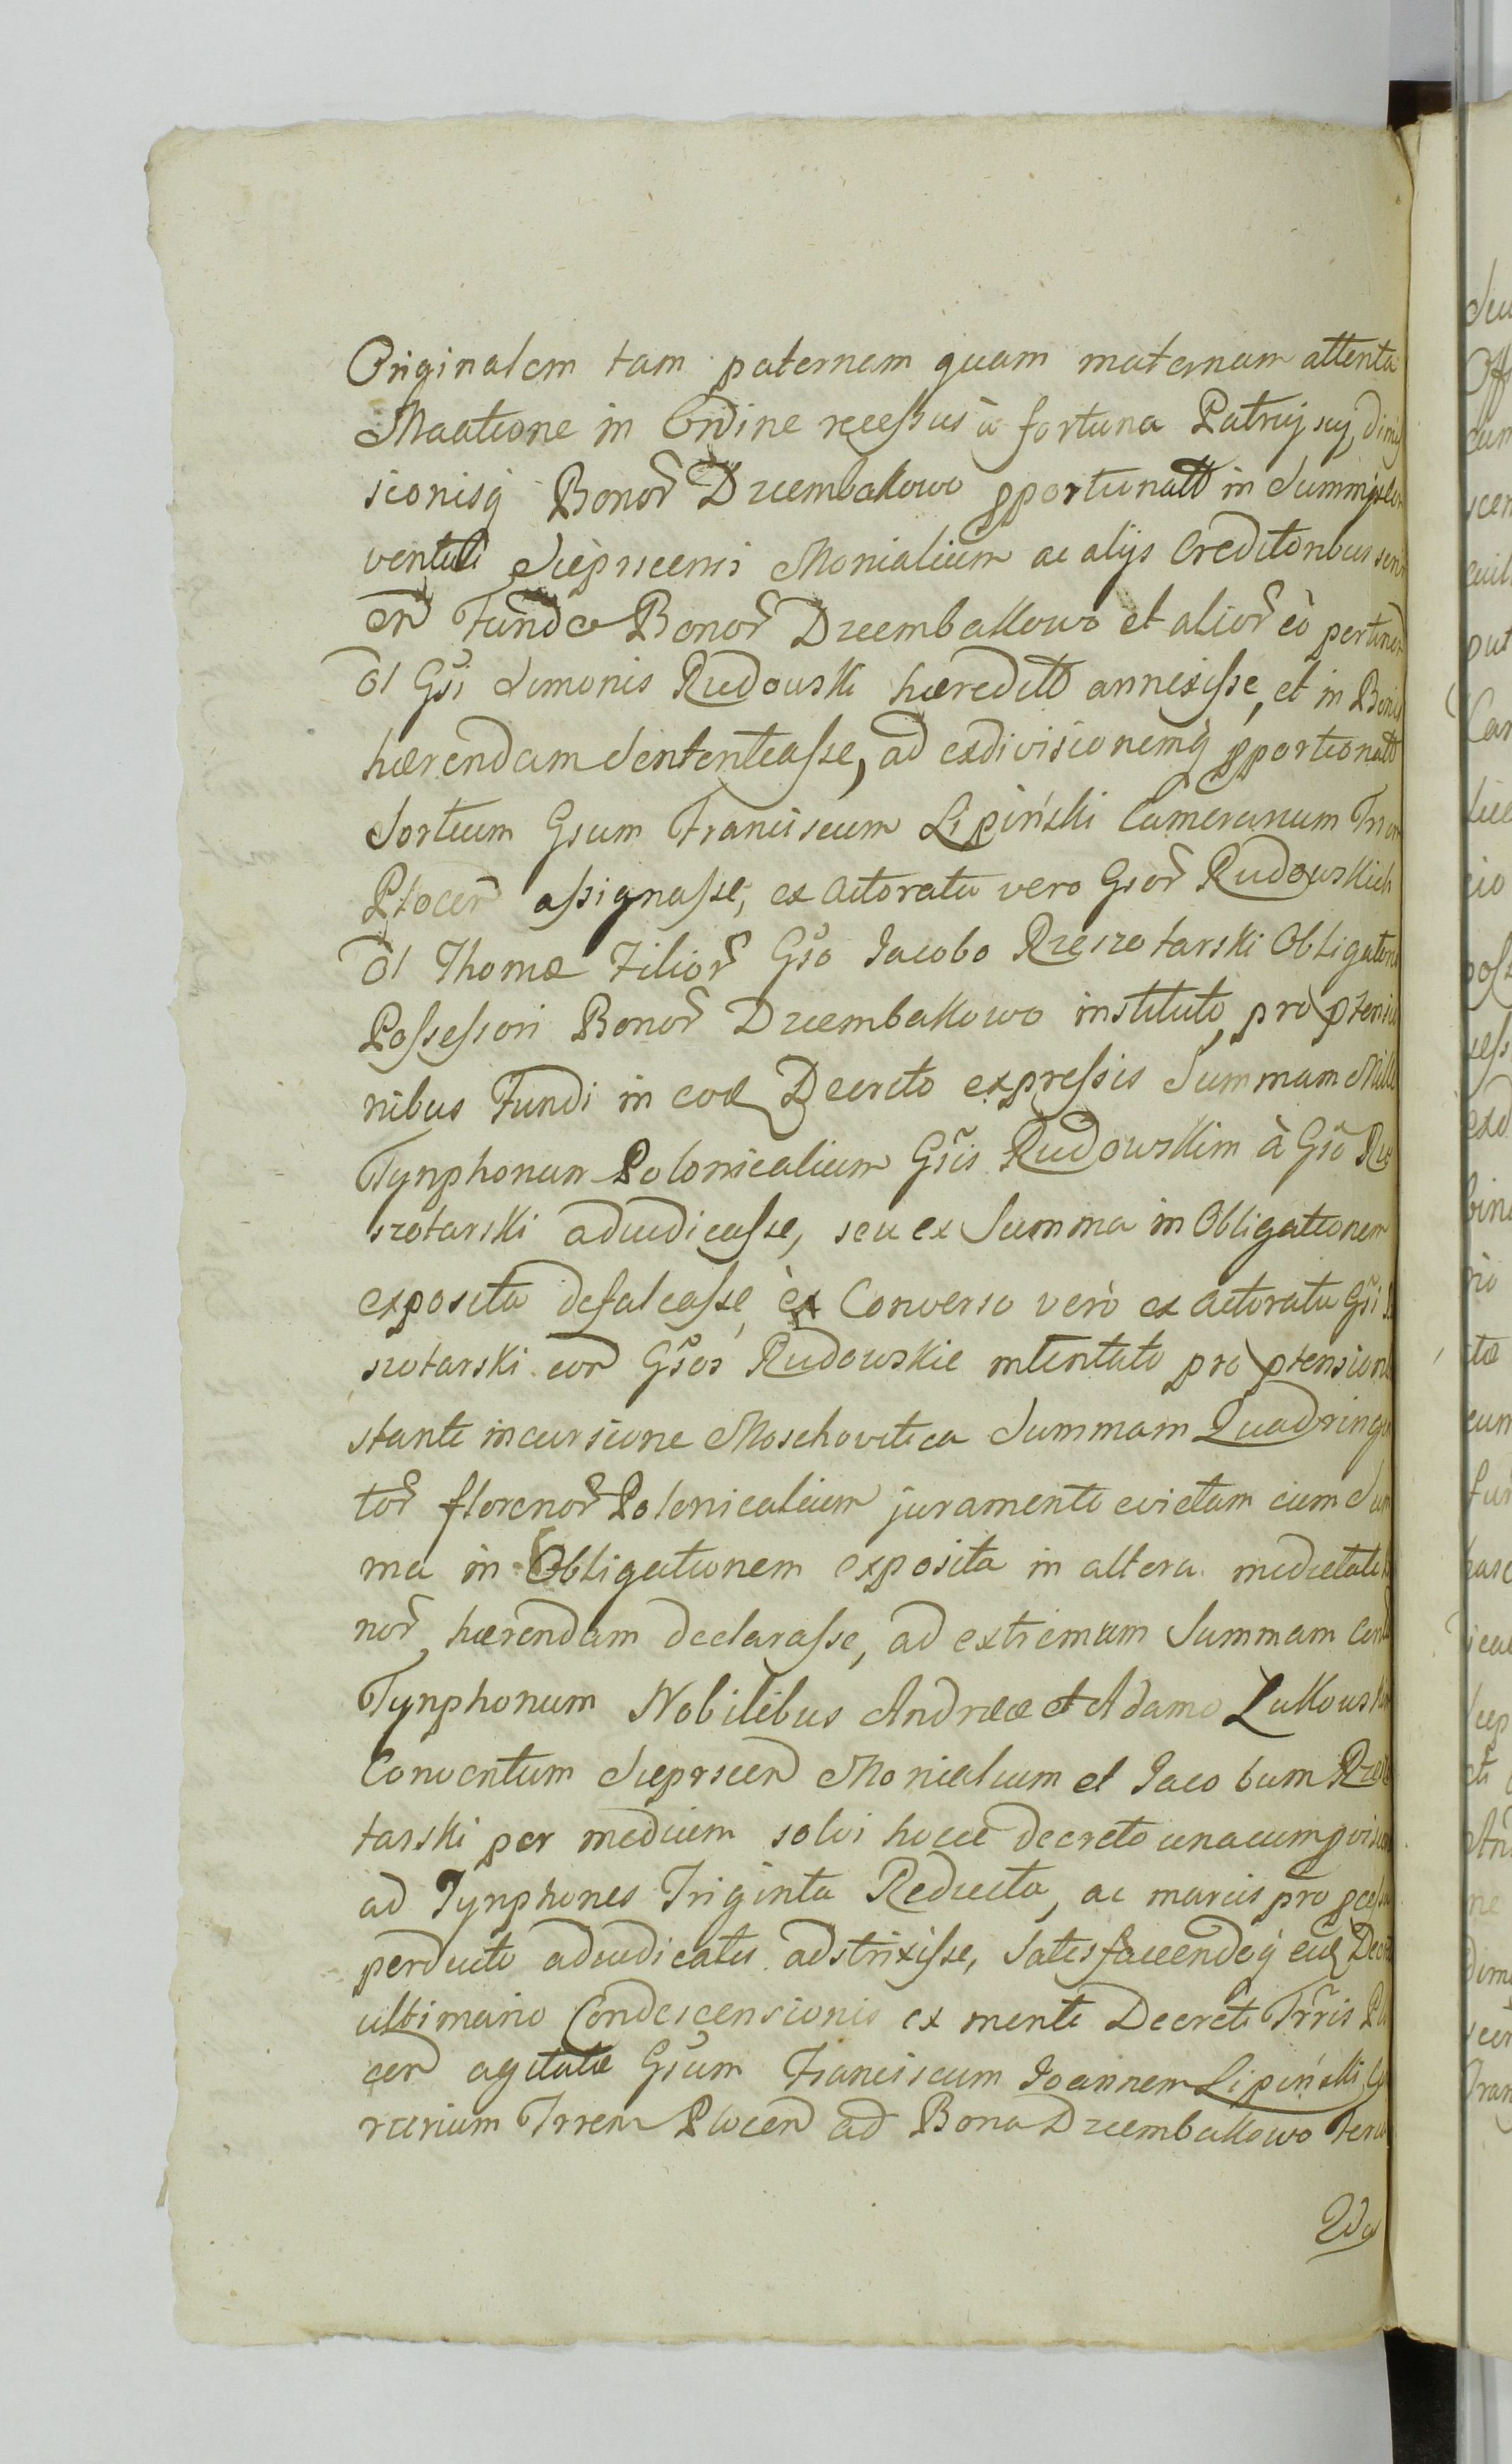 Originalem tam paternam quam maternam attenta
Maatione in Ordine recessus à fortuna Patruj suj, dimis
sionisq Bonor Dziembakowo pportionatt in Summis Con
ventui Siepscensi Monialium ac alijs Creditoribus
en Fundo Bonor Dziembakowo et alior eò pertinen
ol Gsi Simonis Rudowski hæreditt annexisse, et in Bonis
hærendam Sententiasse, ad exdivisionemq pportionatt
Sortium Gsum Franciscum Lipiński Camerarium Trrar
Plocen assignasse, ex actoratu vero Gsor Rudowskich
ol Thomæ Filior Gso Jacobo Rzeszotarski Obligatorio
Possessori Bonor Dziembakowo instituto, pro ptensio
nibus Fundi in eod Decreto expressis Summam Mille
Tynphonum Polonicalium Gsis Rudowskim à Gso Rze
szotarski adiudicasse, seu ex Summa in Obligationem
exposita defalcasse, èx Converso verò ex actoratu Gsi
szotarski con Gsos Rudowskie intentato pro ptensione
stante incursione Moschovitica Summam Quadringen
tor florenor Polonicalium juramento evictam cum Sum
ma in Obligationem exposita in altera medietate
nor hærendam declarasse, ad extremum Summam Centu
Tynphonum Nobilibus Andreæ et Adamo Lukowskim
Conventum Siepscen Monialium et Jacobum Rzeszo
tarski per medium solvi hocce decreto unacum pvision
ad Tynphones Triginta Reducta, ac marcis pro pcessu
perducto adiudicatis adstrixisse, Satisfaciendoq eid Decreto
ultimario Condescensionis ex mente Decreti Trris Plo
cen agitatæ Gsum Franciscum Joannem Lipiński, Ca
rarium Trren Plocen ad Bona Dziembakowo